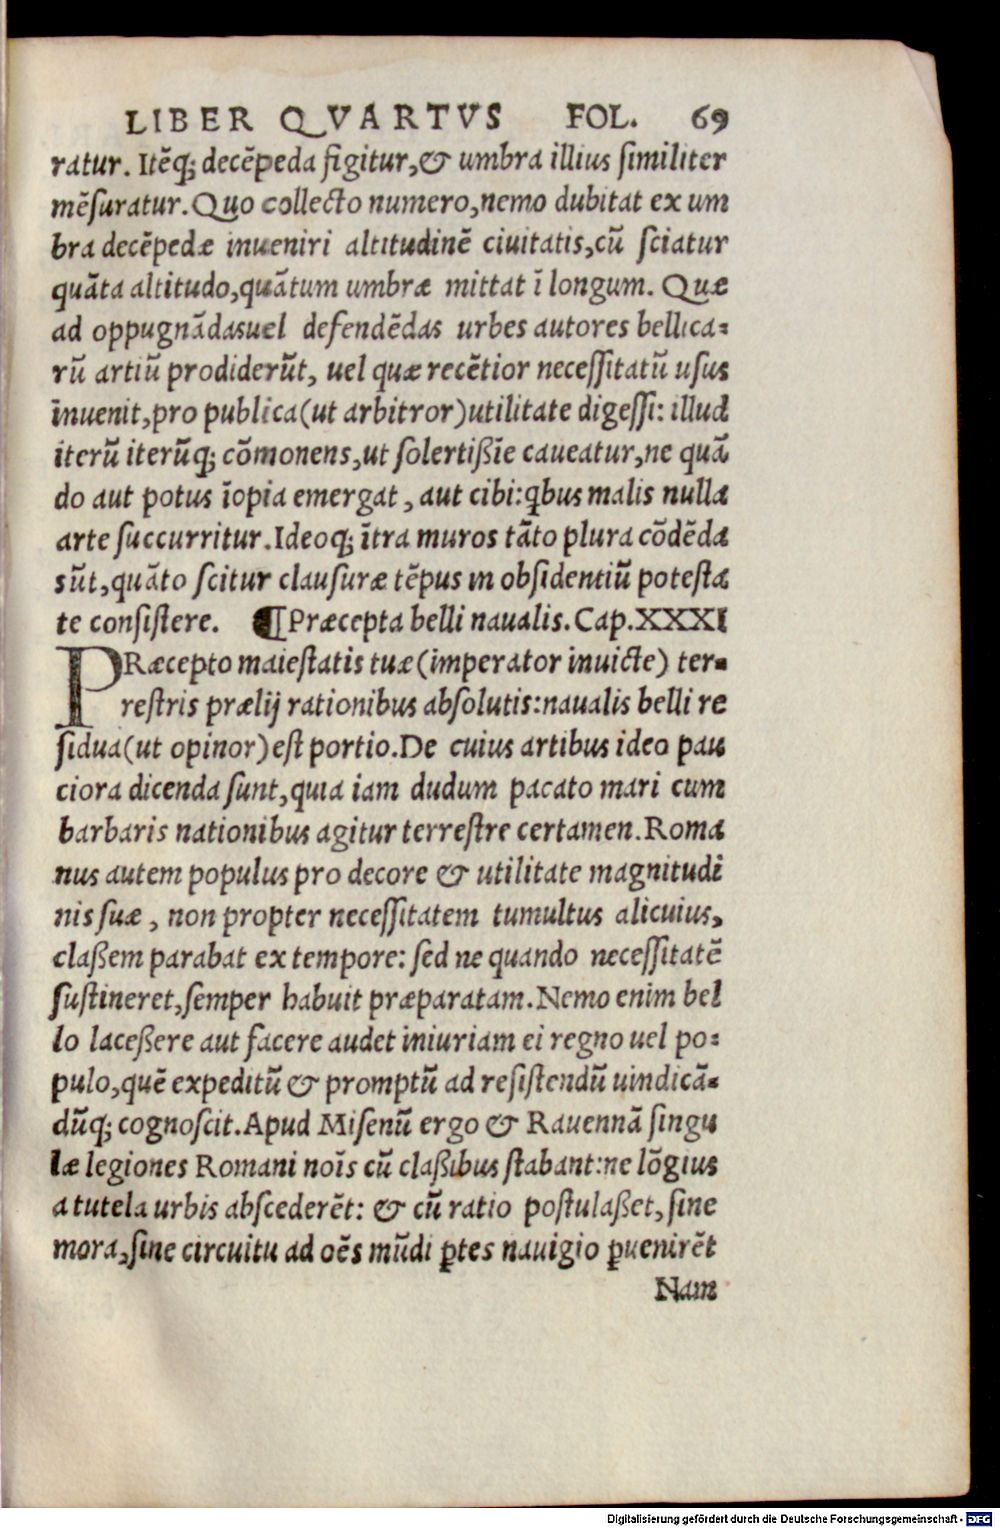 LIBER QVARTVS FOL. 69
ratur. Itēq; decēpeda figitur,& umbra illius ſimiliter
mēſuratur. Quo collecto numero,nemo dubitat ex um
bra decēpedæ inueniri altitudinē ciuitatis,cū ſciatur
quāta altitudo,quātum umbræ mittat ī longum. Quæ
ad oppugnādasuel defendēdas urbes autores bellica⸗
rū artiū prodiderūt, uel quæ recētior neceſſitatū uſus
inuenit,pro publica(ut arbitror)utilitate digeſſi: illud
iterū iterūq; cōmonens,ut ſolertißīe caueatur,ne quā
do aut potus īopia emergat, aut cibi:qbus malis nulla
arte ſuccurritur. Ideoq; ītra muros tāto plura cōdēda
sūt,quāto ſcitur clauſuræ tēpus in obſidentiū poteſta
te conſiſtere. ¶Præcepta belli naualis. Cap. XXXI
PRæcepto maieſtatis tuæ(imperator inuicte) ter⸗
reſtris prælij rationibus abſolutis:naualis belli re
ſidua(ut opinor)eſt portio. De cuius artibus ideo pau
ciora dicenda ſunt,quia iam dudum pacato mari cum
barbaris nationibus agitur terreſtre certamen. Roma
nus autem populus pro decore & utilitate magnitudi
nis ſuæ, non propter neceſſitatem tumultus alicuius,
claßem parabat ex tempore: ſed ne quando neceſſitatē
ſuſtineret,ſemper habuit præparatam. Nemo enim bel
lo laceßere aut facere audet iniuriam ei regno uel po⸗
pulo,quē expeditū & promptū ad reſiſtendū uindicā⸗
dūq; cognoſcit. Apud Miſenū ergo & Rauennā ſingu
læ legiones Romani noīs cū claßibus ſtabant:ne lōgius
a tutela urbis abſcederēt: & cū ratio poſtulaßet, ſine
mora,ſine circuitu ad oēs mūdi ꝑtes nauigio ꝑuenirēt
Nam
Digitalisierung gefördert durch die Deutsche Forschungsgemeinschaft - DFG